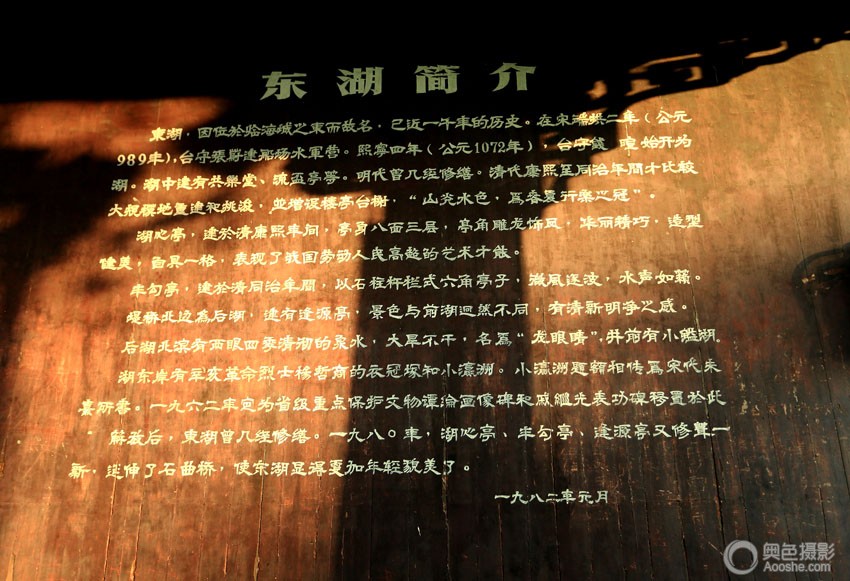 东湖简介
東湖，因位於临海城之東而故名，已近一千年的历史。在宋端拱二年（公元
989年），台守張蔚建船场水軍营。熙寧四年（公元1072年），台守錢暄始开为
湖。湖中建有共樂堂、流盃亭等。明代曾几经修缮。清代康熙至同治年間才比较
大规模地重建和疏浚，並增设楼亭台榭，“山光水色，爲春夏行樂之冠”。
湖心亭，建於清康熙年间，亭身八面三层，亭角雕龙饰凤，华丽精巧，造型
健美，自具一格，表现了我国劳动人民高超的艺术才能。
半勾亭，建於清同治年間，以石柱杆栏式六角亭子，微風逐波，水声如籁。
堤桥北边為后湖，建有逢源亭，景色与前湖迥然不同，有清新明净之感。
后湖北滨有两眼四季清沏的泉水，大旱不干，名爲“龙眼睛”，井前有小鑑湖。
湖东岸有辛亥革命烈士楊哲商的衣冠塚和小瀛洲。小瀛洲题額相传爲宋代朱
熹所書。一九六二年定为省级重点保护文物譚綸画像碑和戚繼光表功碑移置於此
解放后，東湖曾几经修缮。一九八〇年，湖心亭、半勾亭、逢源亭又修葺一
新，延伸了石曲桥，使东湖显得更加年轻貌美了。
一九八二年元月
奥色摄影
Aooshe.com